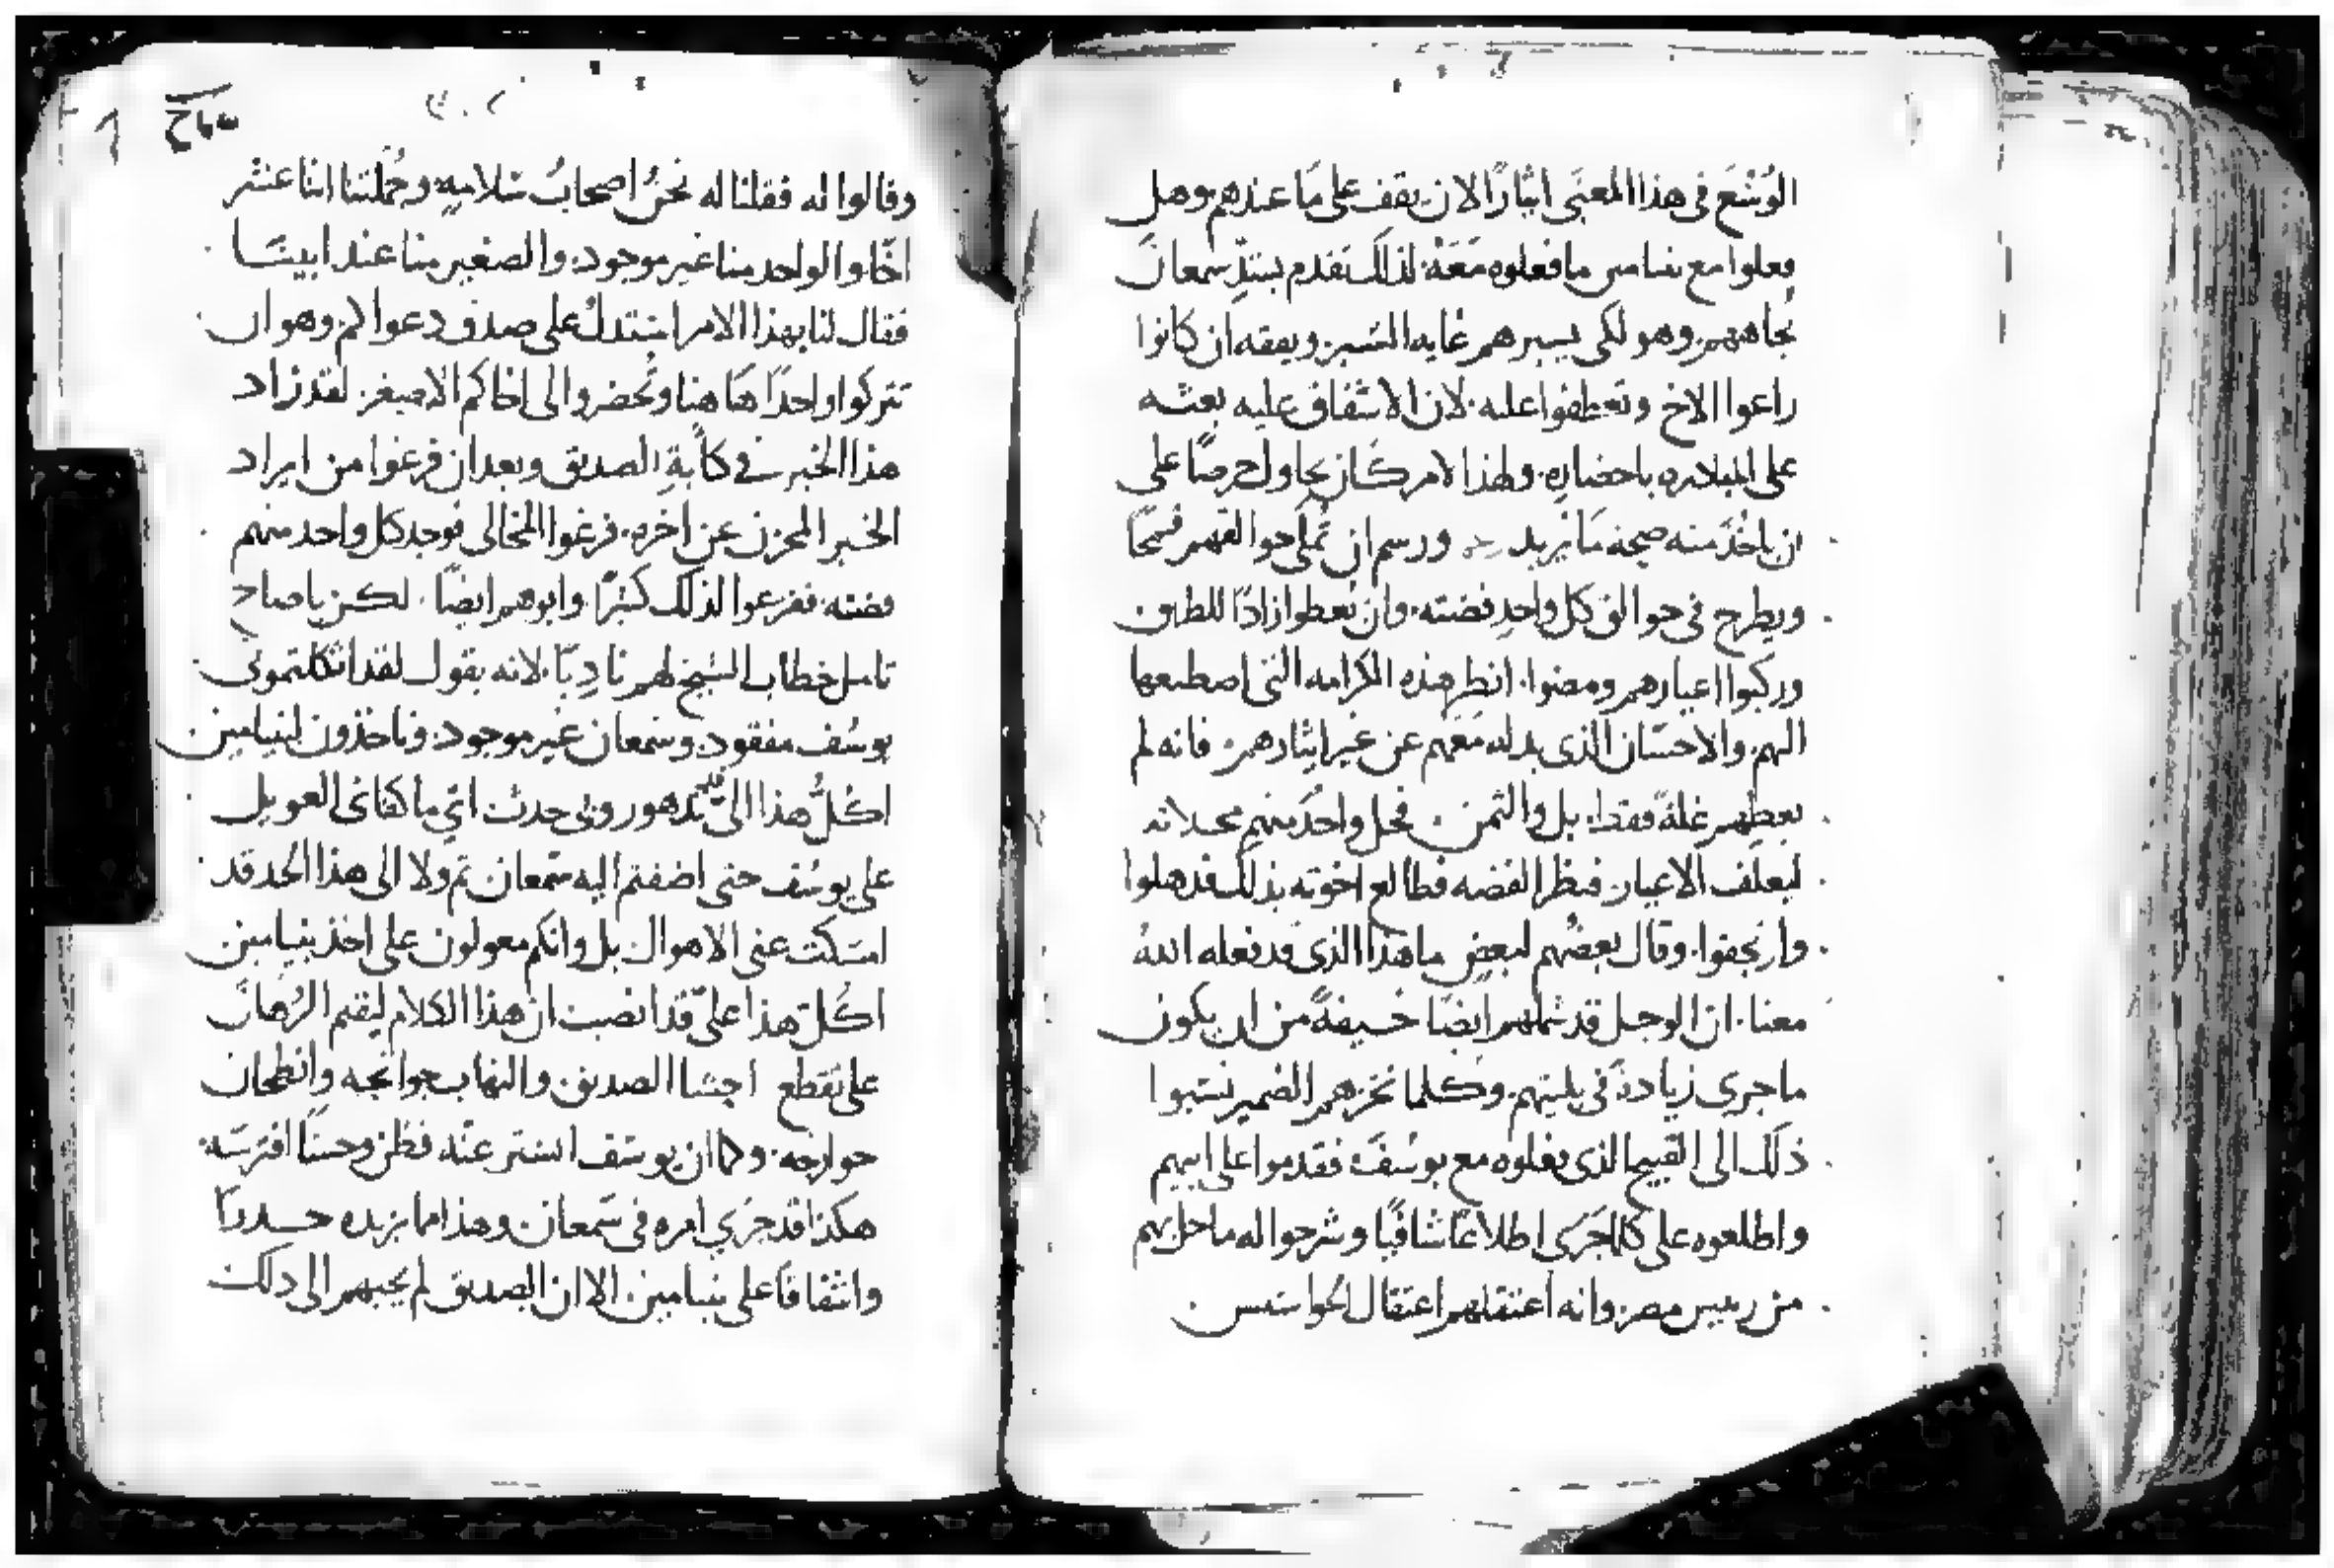 الوُسْعَ في هذا المعنَى ايثارًا لان يقف على مَا عندهم وهل
فعلوا مع بنيامين ما فعلوه مَعَهُ لذلك تقدم بسَدِّ سمعان
تجاههم وهو لكي يسبرهم غايه السَبر ويفقه ان كانوا
راعوا الاخ وتعطفوا عليه لان الاشفاق عليه بعثه
على المبادره باحضارِه ولهذا الامر كَان يحاول حرصًا على
ان ياخُذ منه صحة مَا يريد ورسم ان تُملَى جوالقهم قمحًا
ويطرح في جوالق كل واحدٍ فضته وان يُعطوا زادًا للطريق
وركبوا اعيارهم ومضوا انظر هذه الكرامه التي اصطنعها
اليهم والاحسَان الذي بدله مَعَهُم عن غير ايثارهم فانه لم
يعطِهم غلةً فقط بل والثمن فحل واحدٌ منهم عدلاته
ليعلف الاعيار فنظر الفضه فطالع اخوته بذلك فذهلوا
وارتجفوا وقال بعضُهم لبعضٍ ما هذا الذي قد فعله اللهُ
معنا ان الوجل قد شملهم ايضًا خيفةً من ان يكون
ما جرى زيادةً في بليتهم وكلما نخزهم الضمير نسَبوا
ذلك الى القبيح الذي فعلوه مع يوسُفَ فقدموا على ابيهم
واطلعوه على كلما جَرَى اطلاعًا شافيًا وشرحوا له ما حل بهم
من رييس مصر وانه اعتقلهم اعتقال الجواسَيس
وقالوا له فقلنا له نحنُ اصحابُ سَلامهٍ وجُملتنا اثنا عشر
اخًا والواحد منا غير موجود والصغير منا عند ابينَا
فقال لنا بهذا الامر اسَتدلُ على صدق دعواكم وهو ان
تتركوا واحدًا هَا هنا وتُحضروا الى اخاكم الاصغر لقد زاد
هذا الخبر في كآبةِ الصديق وبعد ان فرغوا من ايراد
الخبر المحزن عن اخره فرغوا المخالى فوجد كل واحد منهم
فضته ففزعوا لذلك كثيرًا وابوهم ايضًا لكن يا صاح
تامل خطاب الشيخ لهم نادِبًا لانه يقول لقد اثكلتموني
يوسُف مفقود وسَمعان غير موجود وتاخذون لبنيامين
اكُلُّ هذا الىّ تدهور وبي حدث اي ما كفاني العويل
على يوسُف حتى اضفتم اليه سَمعان ثم ولا الى هذا الحد قد
امسَكت عني الاهوال بل وانكم معولون على اخذ بنيامين
اكُل هذا عليّ قد انصبت ان هذا الكلام ليقيم البُرهان
على تقطع احشَا الصديق والتهاب جوانحِه وانطحان
جوارحِه وكما ان يوسَف استتر عنْه فظن وحشًا افترسَه
هكذا قد جرَى امره في سَمعان وهذا مما يزيده حدرًا
واشفاقًا على بنيامين الا ان الصديق لم يجبهم الى ذلك